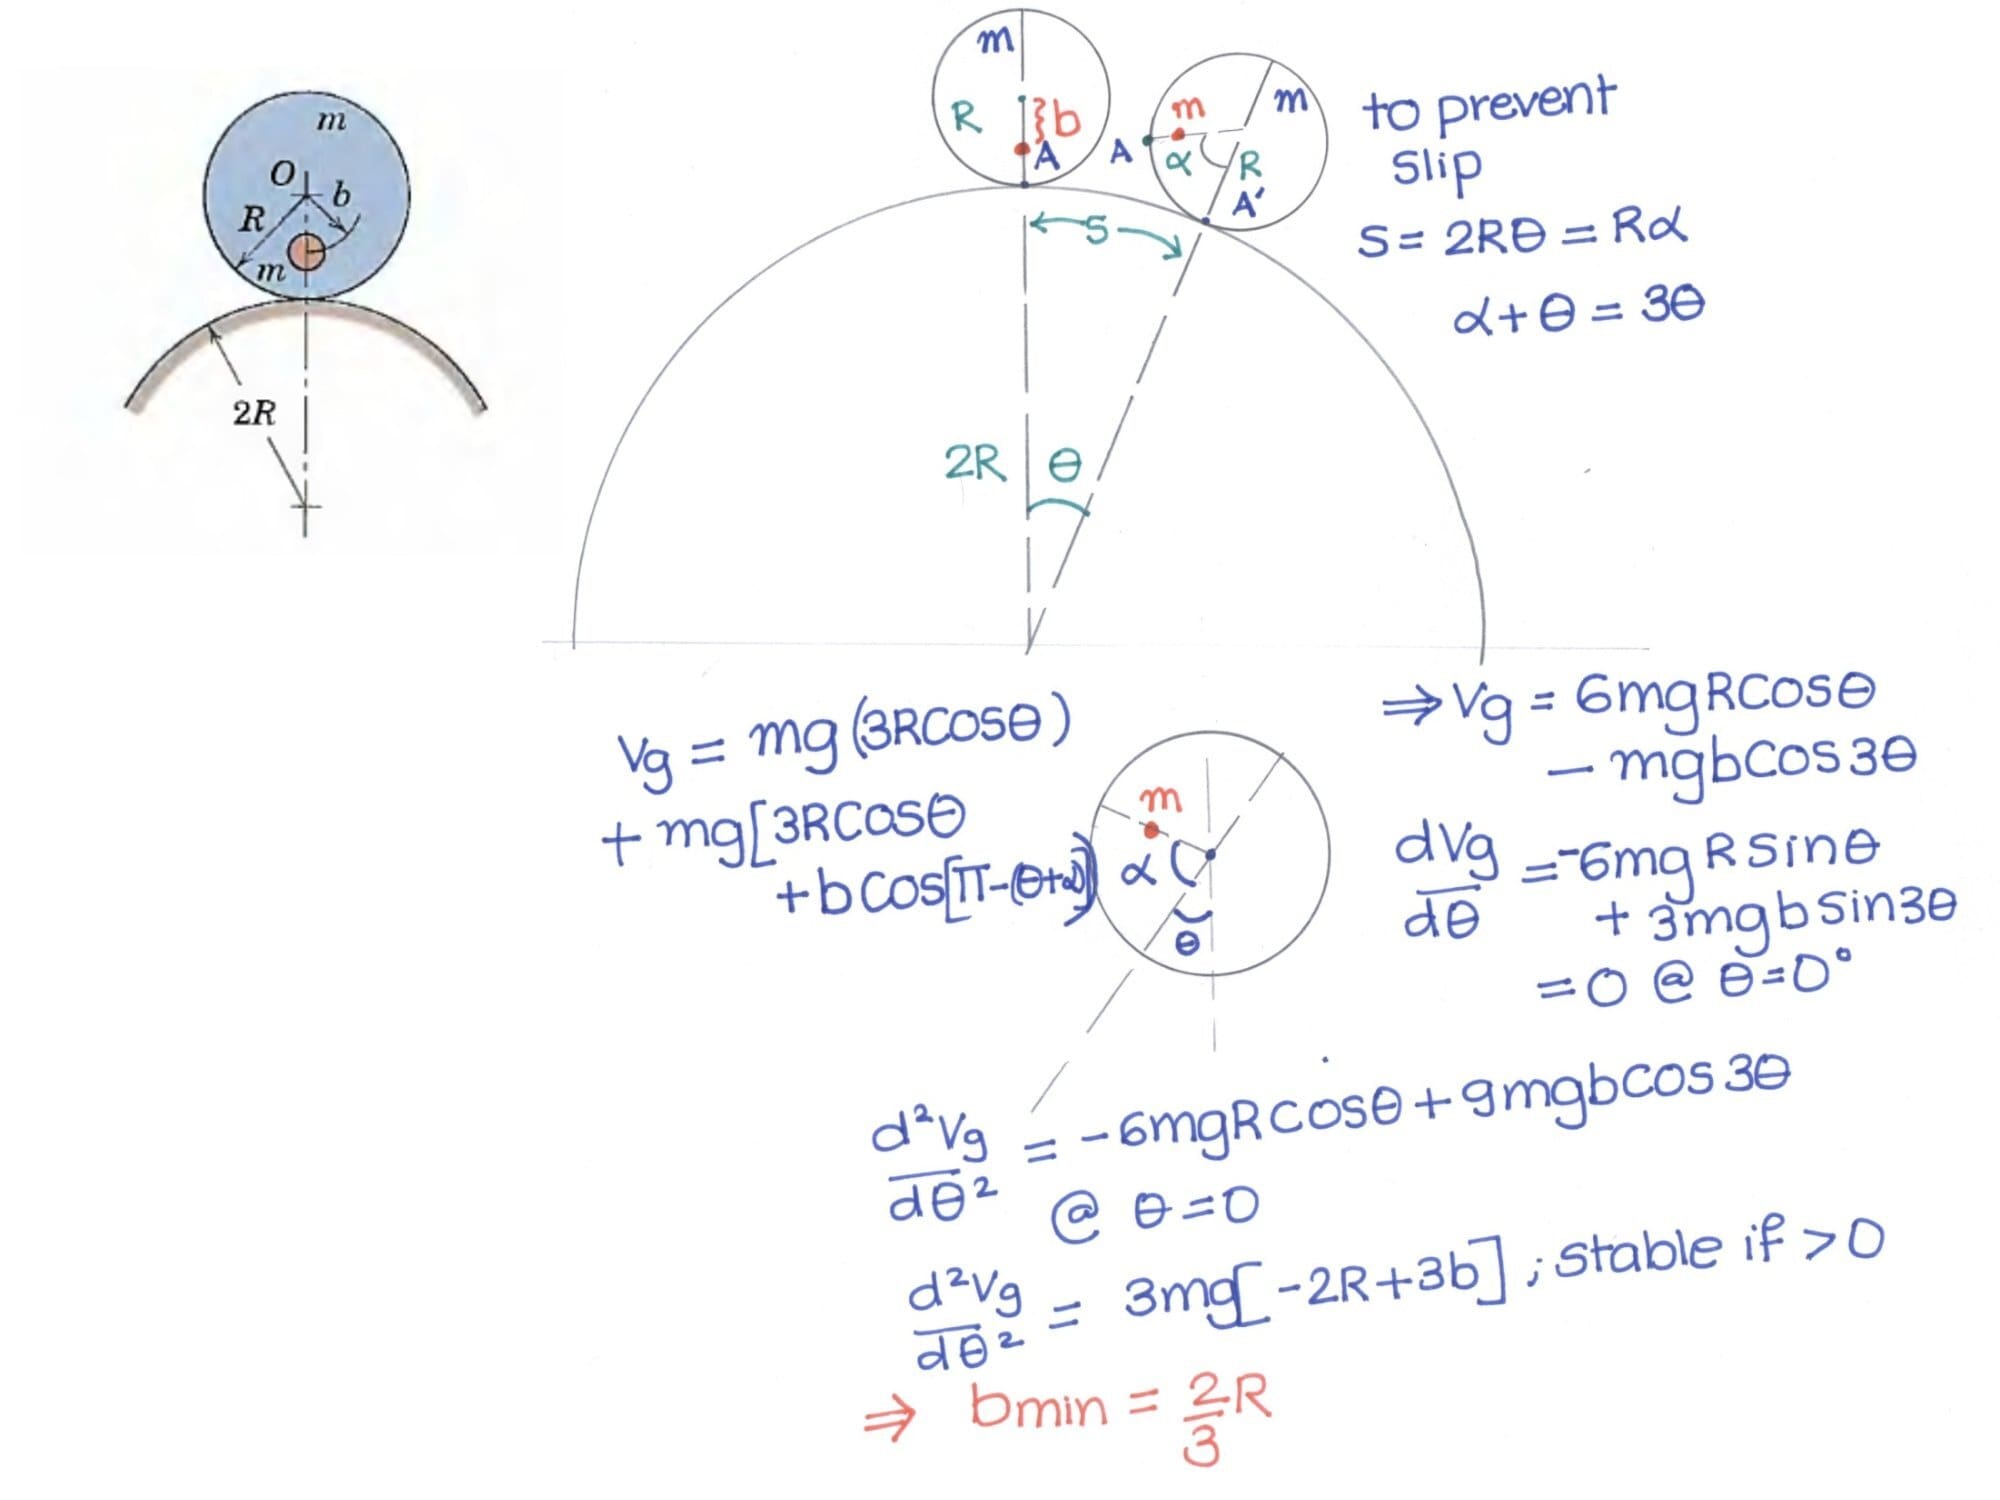 m
O
b
R
m
2R
m
R
b
A
m
m
A
α
R
A'
S
2R
θ
to prevent
slip
S = 2Rθ = Rα
α+θ = 3θ
Vg = mg(3Rcosθ)
+ mg[3Rcosθ
+bcos[π-(θ+α)]
m
α
θ
⇒ Vg = 6mgRcosθ
- mgbcos3θ
dVg/dθ = -6mgRsinθ
+ 3mgbsin3θ
= 0 @ θ=0°
d²Vg/dθ² = -6mgRcosθ + 9mgbcos3θ
@ θ=0
d²Vg/dθ² = 3mg[-2R+3b] ; stable if >0
⇒ bmin = 2/3 R